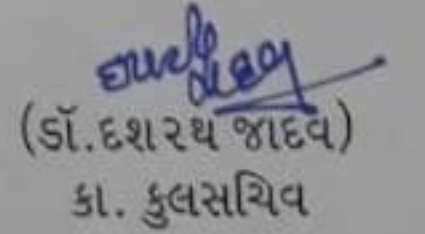 (ડૉ.દશરથ જાદવ)
કા. કુલસચિવ